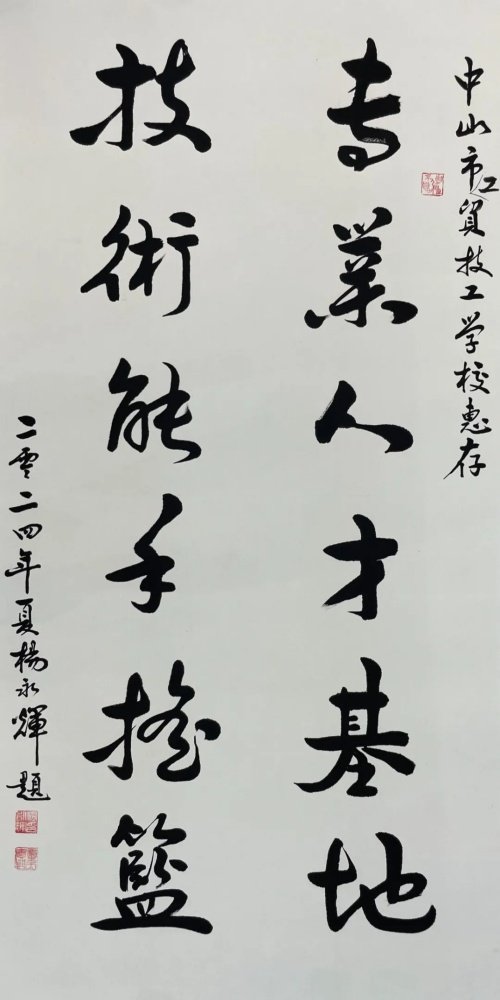 中山市工貿技工学校惠存
专業人才基地
技術能手搖籃
二零二四年夏楊永輝題